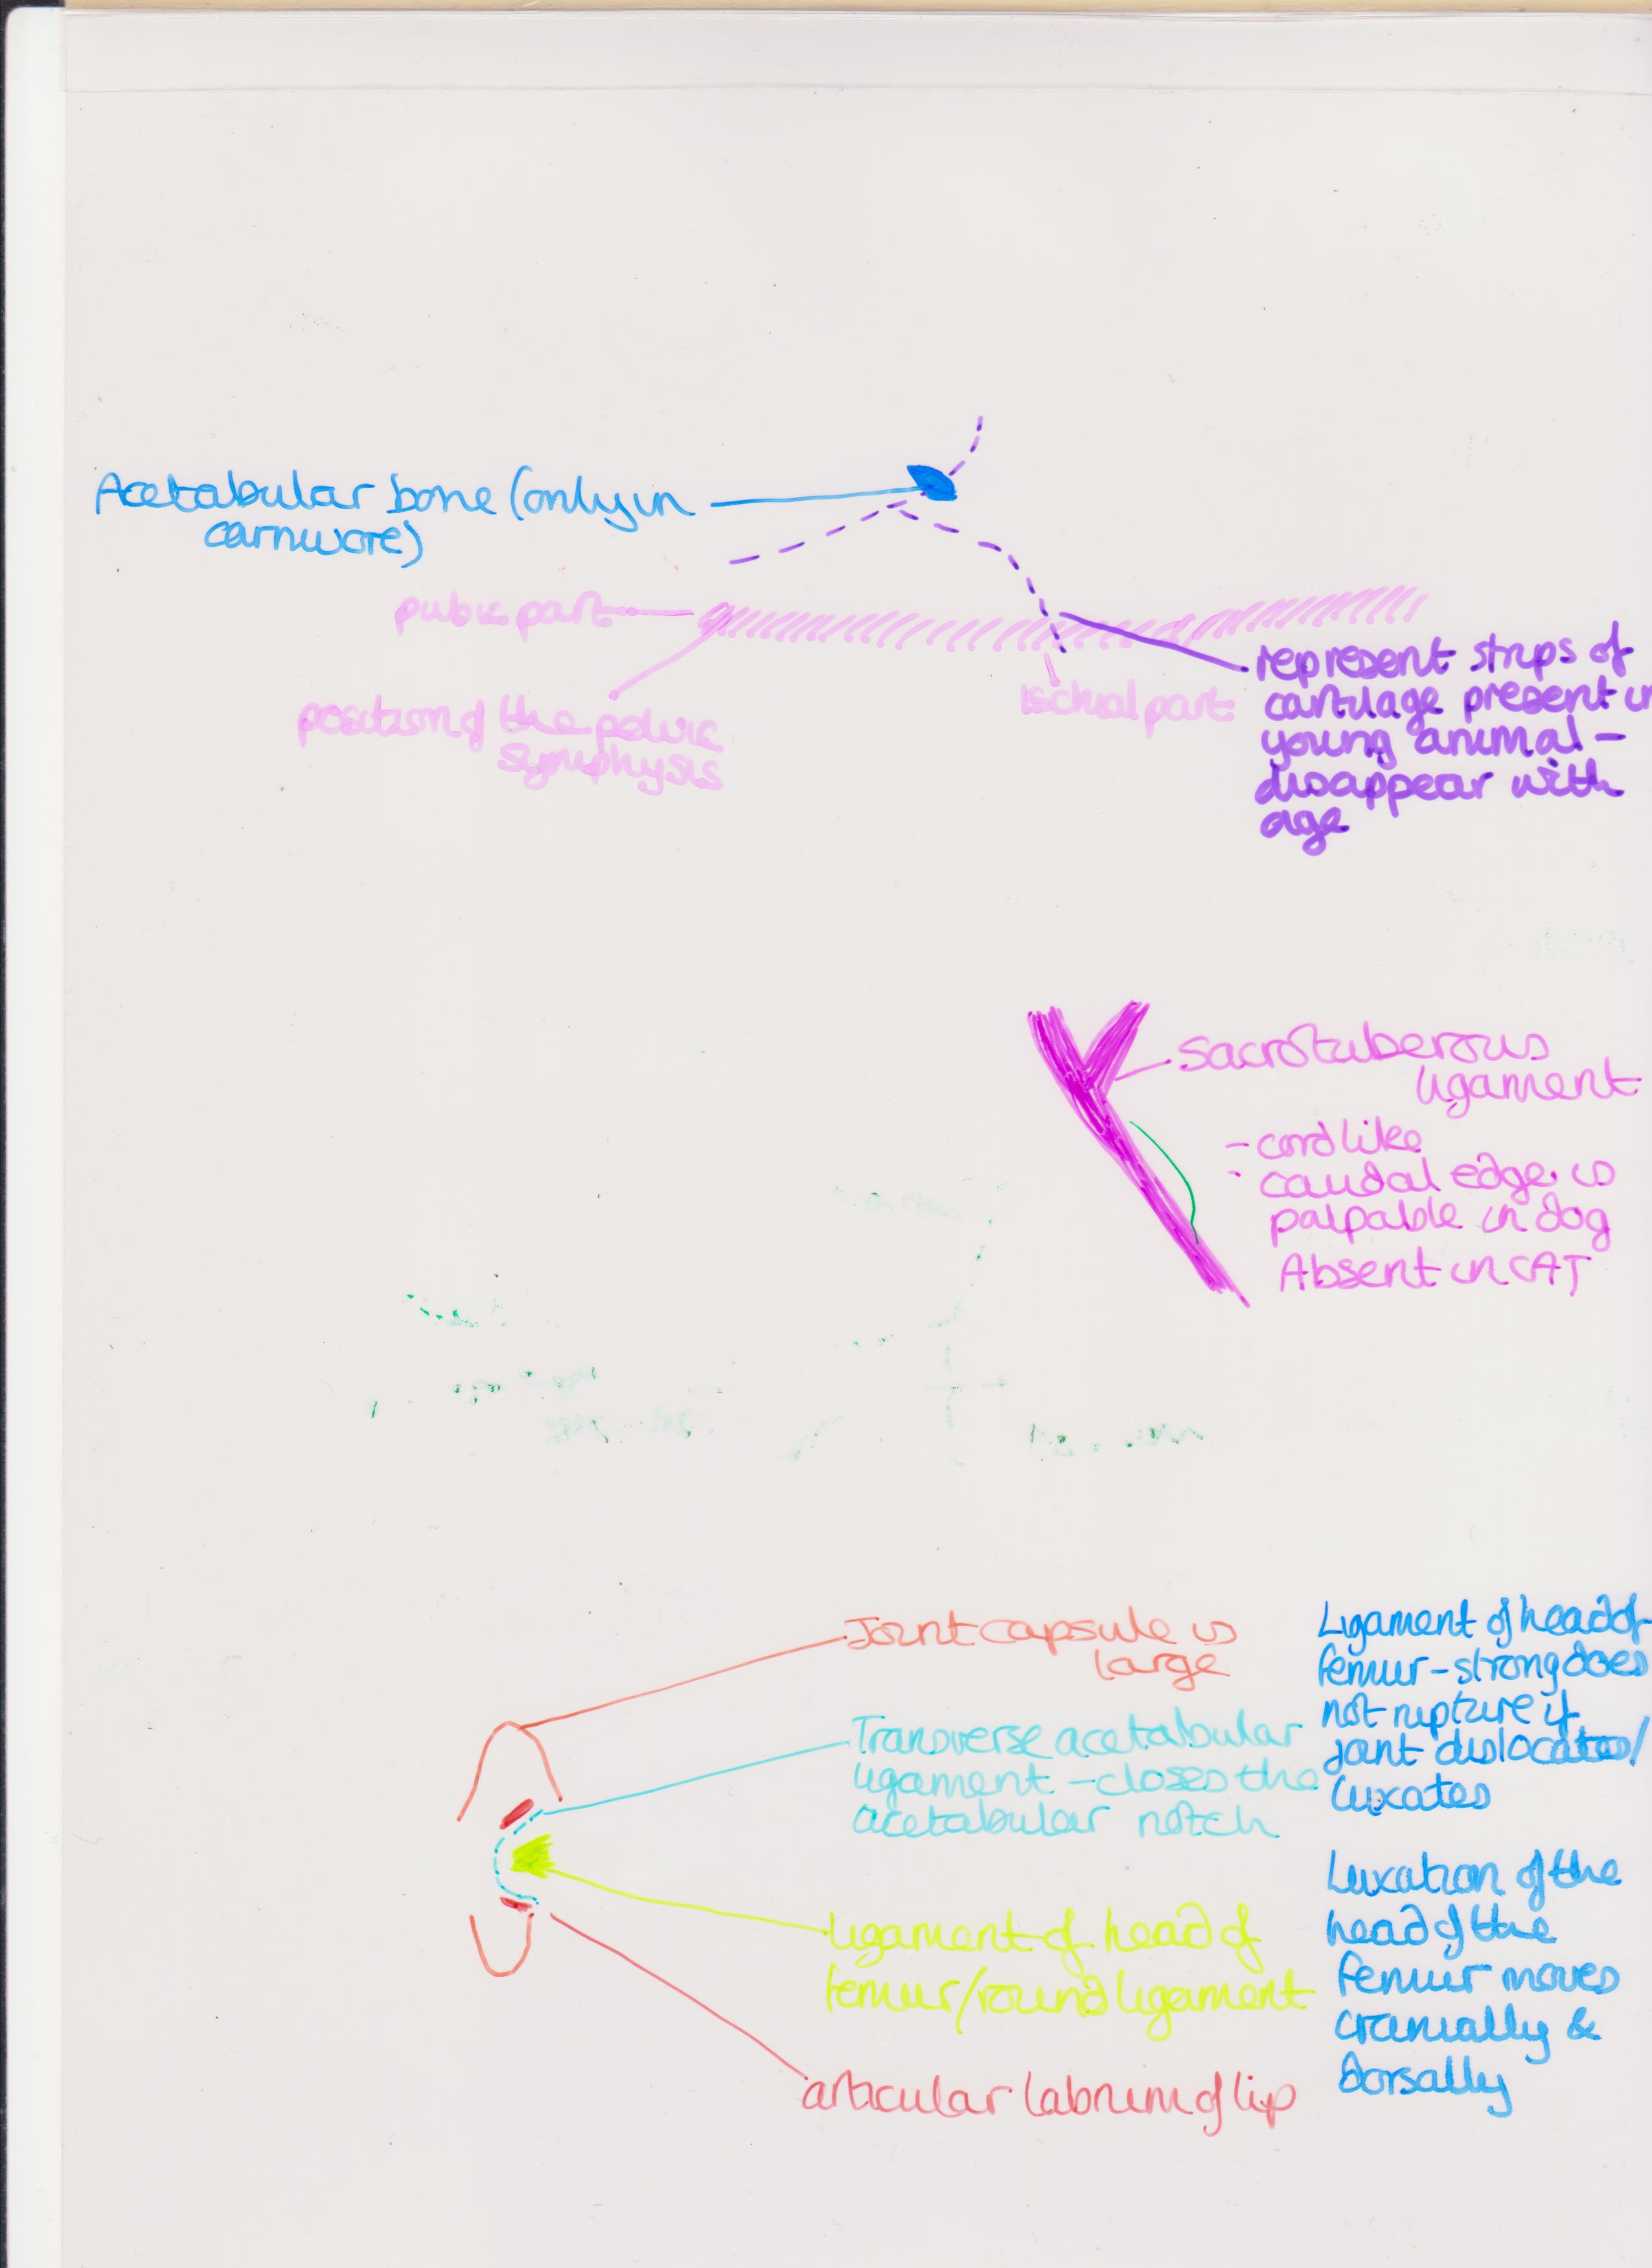 Acetabular bone (only in
carnivore)
pubic part
position of the pelvic
symphysis
Ischial part
represent strips of
cartilage present in
young animal -
disappear with
age
Sacrotuberous
ligament
- cord like
- caudal edge is
palpable in dog
Absent in CAT
Joint capsule is
large
Transverse acetabular
ligament - closes the
acetabular notch
ligament of head of
femur/round ligament
articular labrum of lip
Ligament of head of
femur - strong does
not rupture if
joint dislocates/
luxates
Luxation of the
head of the
femur moves
cranially &
Dorsally